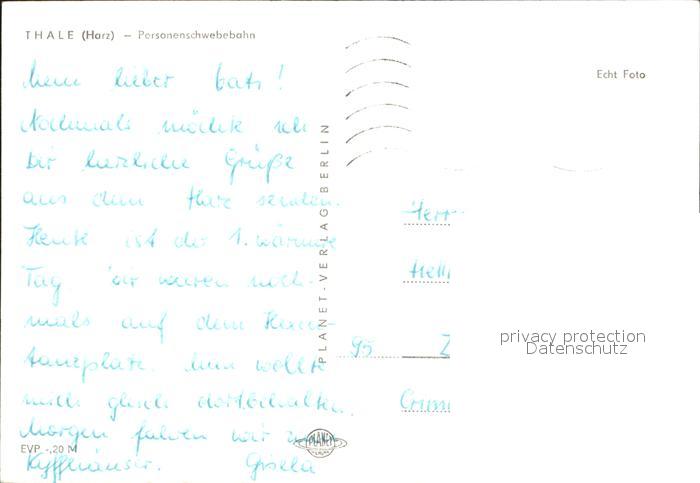 THALE (Harz) – Personenschwebebahn
Echt Foto
Mein lieber
Nochmals möchte ich
Dir herzliche Grüße
aus dem Harz senden.
Heute ist der 1. wärmere
Tag wir waren noch-
mals auf dem Hexen-
tanzplatz. Man wollte
mich gleich dortbehalten.
Morgen fahren wir z
Kyffhäuser. Gisela
EVP -,20 M
PLANET-VERLAG BERLIN
PLANET
Herr
Hell
95 Z
Crimm
privacy protection
Datenschutz